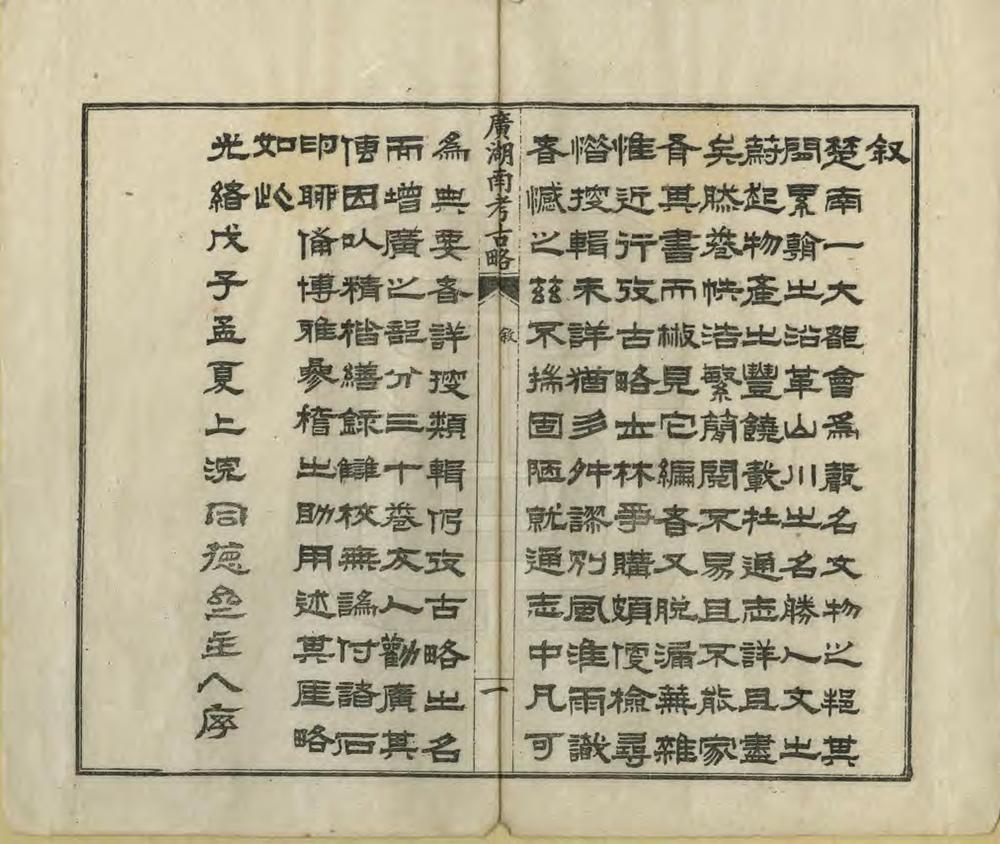 叙
楚南一大都會為聲名文物之邦其
間累朝之沿革山川之名勝人文之
蔚起物產之豐饒載在通志詳且盡
矣然卷帙浩繁簡閱不易且不能家
有其書而椒見它編者又脫漏蕪雜
惟近行攷古略士林爭購頗便檢尋
惜搜輯未詳猶多舛謬別風淮雨識
者憾之茲不揣固陋就通志中凡可
廣湖南考古略
敘
一
為典要者詳搜類輯仍攷古略之名
而增廣之部分三十卷友人勸廣其
傳因以精楷繕錄讎校無譌付諸石
印聊備博雅參稽之助用述其厓略
如此
光緒戊子孟夏上浣同德堂主人序